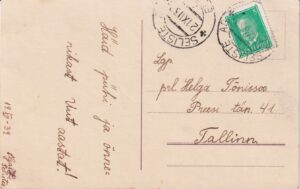 Häid pühi ja õnne-
rikast Uut
aastat!
SELISTE
SELISTE
Lgp.
prl. Helga Tõnisson
tän. 41
Tallinn